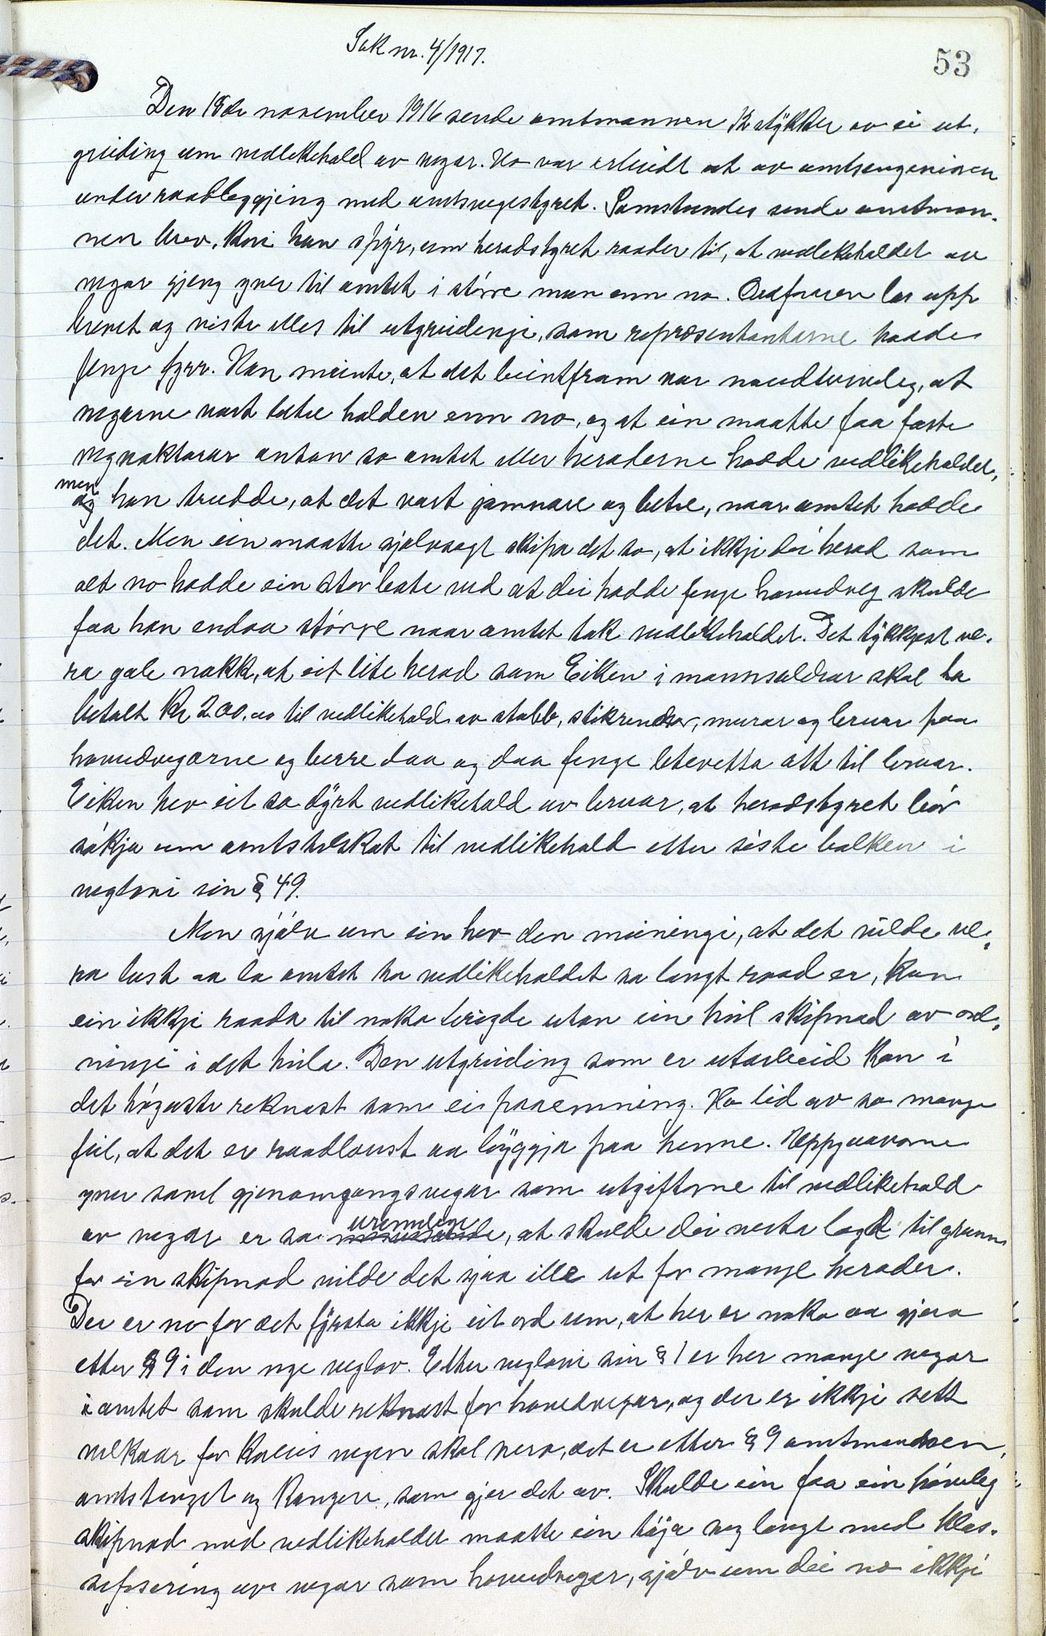 Sak nr. 4/1917.
53
Den 18de november 1916 sende amtmannen 16 stykker av ei ut-
greiding um vedlikehald av vegar. Ho var utarbeidt av amtsingeniøren
under raadleggjing med amtsvegstyret. Samstundes sende amtman-
nen brev, kori han spyr, um heradstyret raader til, at vedlikehaldet av
vegar gjeng yver til amtet i større mun enn no. Ordføraren las upp
brevet og viste elles til utgreidingi, som repræsentantarne hadde
fenge fyrr. Han meinte, at det beintfram var naudturveleg, at
vegarne vart betre haldne enn no, og at ein maatte faa faste
vegvaktarar antan so amtet eller heraderne hadde vedlikehaldet,
men
og han trudde, at det vart jamnare og betre, naar amtet hadde
det. Men ein maatte sjølvsagt skipa det so, at ikkje dei herad som
alt no hadde ein stor laste ved at dei hadde fenge hovudveg skulde
faa han endaa større naar amtet tok vedlikehaldet. Det tykkjest ve-
ra gale nokk, at eit lite herad som Eiken i mannsaldrar skal ha
betalt Kr 200,00 til vedlikehald av stabb, stikrendor, murar og bruar paa
hovudvegarne og berre daa og daa fenge letevetta att til bruar.
Eiken hev eit so dyrt vedlikehald av bruar, at heradstyret bør
søkja um amtstilskot til vedlikehald etter siste bolken i
veglovi sin § 49.
Men sjølv um ein hev den meiningi, at det vilde ve-
ra best aa la amtet ha vedlikehaldet so langt raad er, kan
ein ikkje raada til noko brigde utan ein heil skipnad av ord-
ningi i det heila. Den utgreiding som er utarbeid kan i
det høgaste reknast som ei paaemning. Ho lid av so mange
feil, at det er raadlaust aa byggja paa henne. Uppgaavorne
yver saml gjenomgangsvegar som utgifterne til vedlikehald
urimelege
av vegar er so, at skulde dei verta lagt til grunn
for ein skipnad vilde det sjaa ille ut for mange herader.
Der er no for det fyrsta ikkje eit ord um, at her er noko aa gjera
etter § 9 i den nye veglov. Etter veglovi sin § 1 er her mange vegar
i amtet som skulde reknast for hovedvegar, og der er ikkje sett
vilkaar for koleis vegen skal vera, det er etter § 9 amtmannen,
amtstinget og Kongen, som gjer det av. Skulde ein faa ein høveleg
skipnad med vedlikehaldet maatte ein tøja seg langt med klas-
sefisering av vegar som hovudvegar, sjølv um dei no ikkje